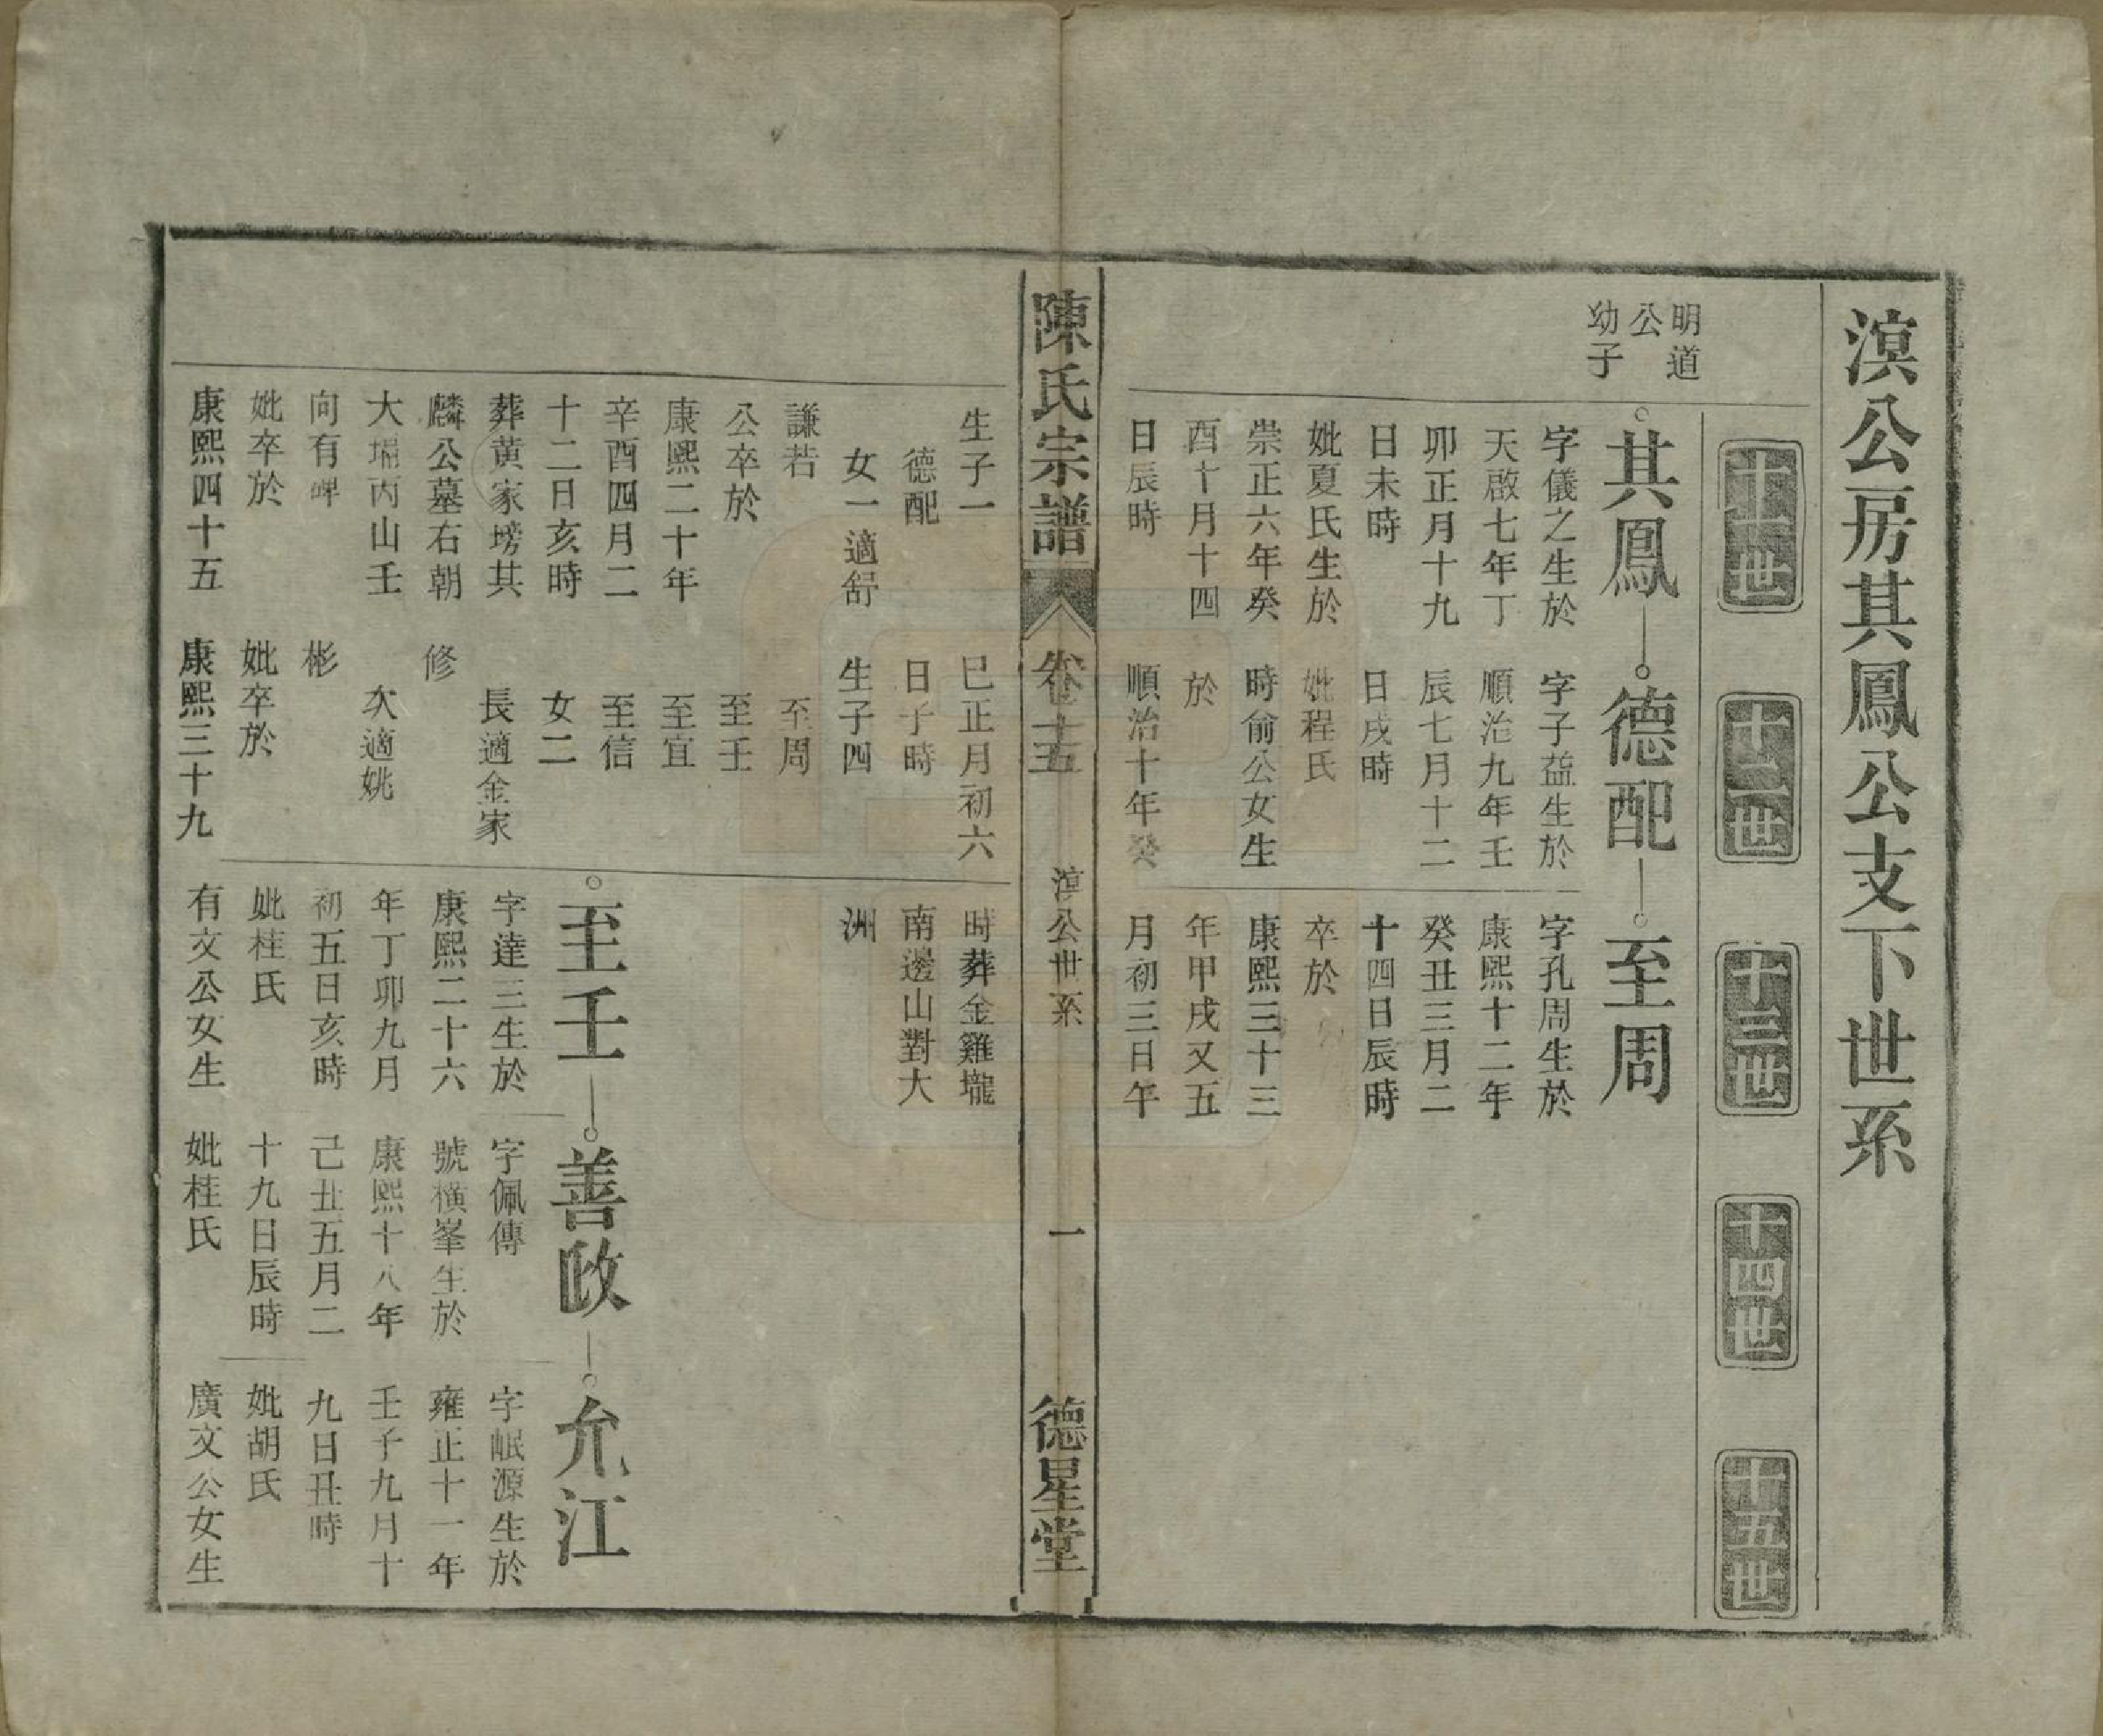 溟公房其鳳公支下世系
十一世
十二世
十三世
十四世
十五世
明道
公
幼子
其鳳
字儀之生於
天啟七年丁
卯正月十九
日未時
妣夏氏生於
崇正六年癸
酉十月十四
日辰時
德配
字子益生於
順治九年壬
辰七月十二
日戌時
妣程氏
時俞公女生
於
順治十年癸
至周
字孔周生於
康熙十二年
癸丑三月二
十四日辰時
卒於
康熙三十三
年甲戌又五
月初三日午
陳氏宗譜
卷十五
溟公世系
一
德星堂
生子一
德配
女一適舒
謙若
公卒於
康熙二十年
辛酉四月二
十二日亥時
葬黃家塝其
麟公墓右朝
大塥丙山壬
向有碑
妣卒於
康熙四十五
巳正月初六
日子時
生子四
至周
至壬
至宜
至信
女二
長適金家
修
次適姚
彬
妣卒於
康熙三十九
時葬金雞壠
南邊山對大
洲
至壬
字達三生於
康熙二十六
年丁卯九月
初五日亥時
妣桂氏
有文公女生
善政
字佩傳
號橫峯生於
康熙十八年
己丑五月二
十九日辰時
妣桂氏
允江
字岷源生於
雍正十一年
壬子九月十
九日丑時
妣胡氏
廣文公女生